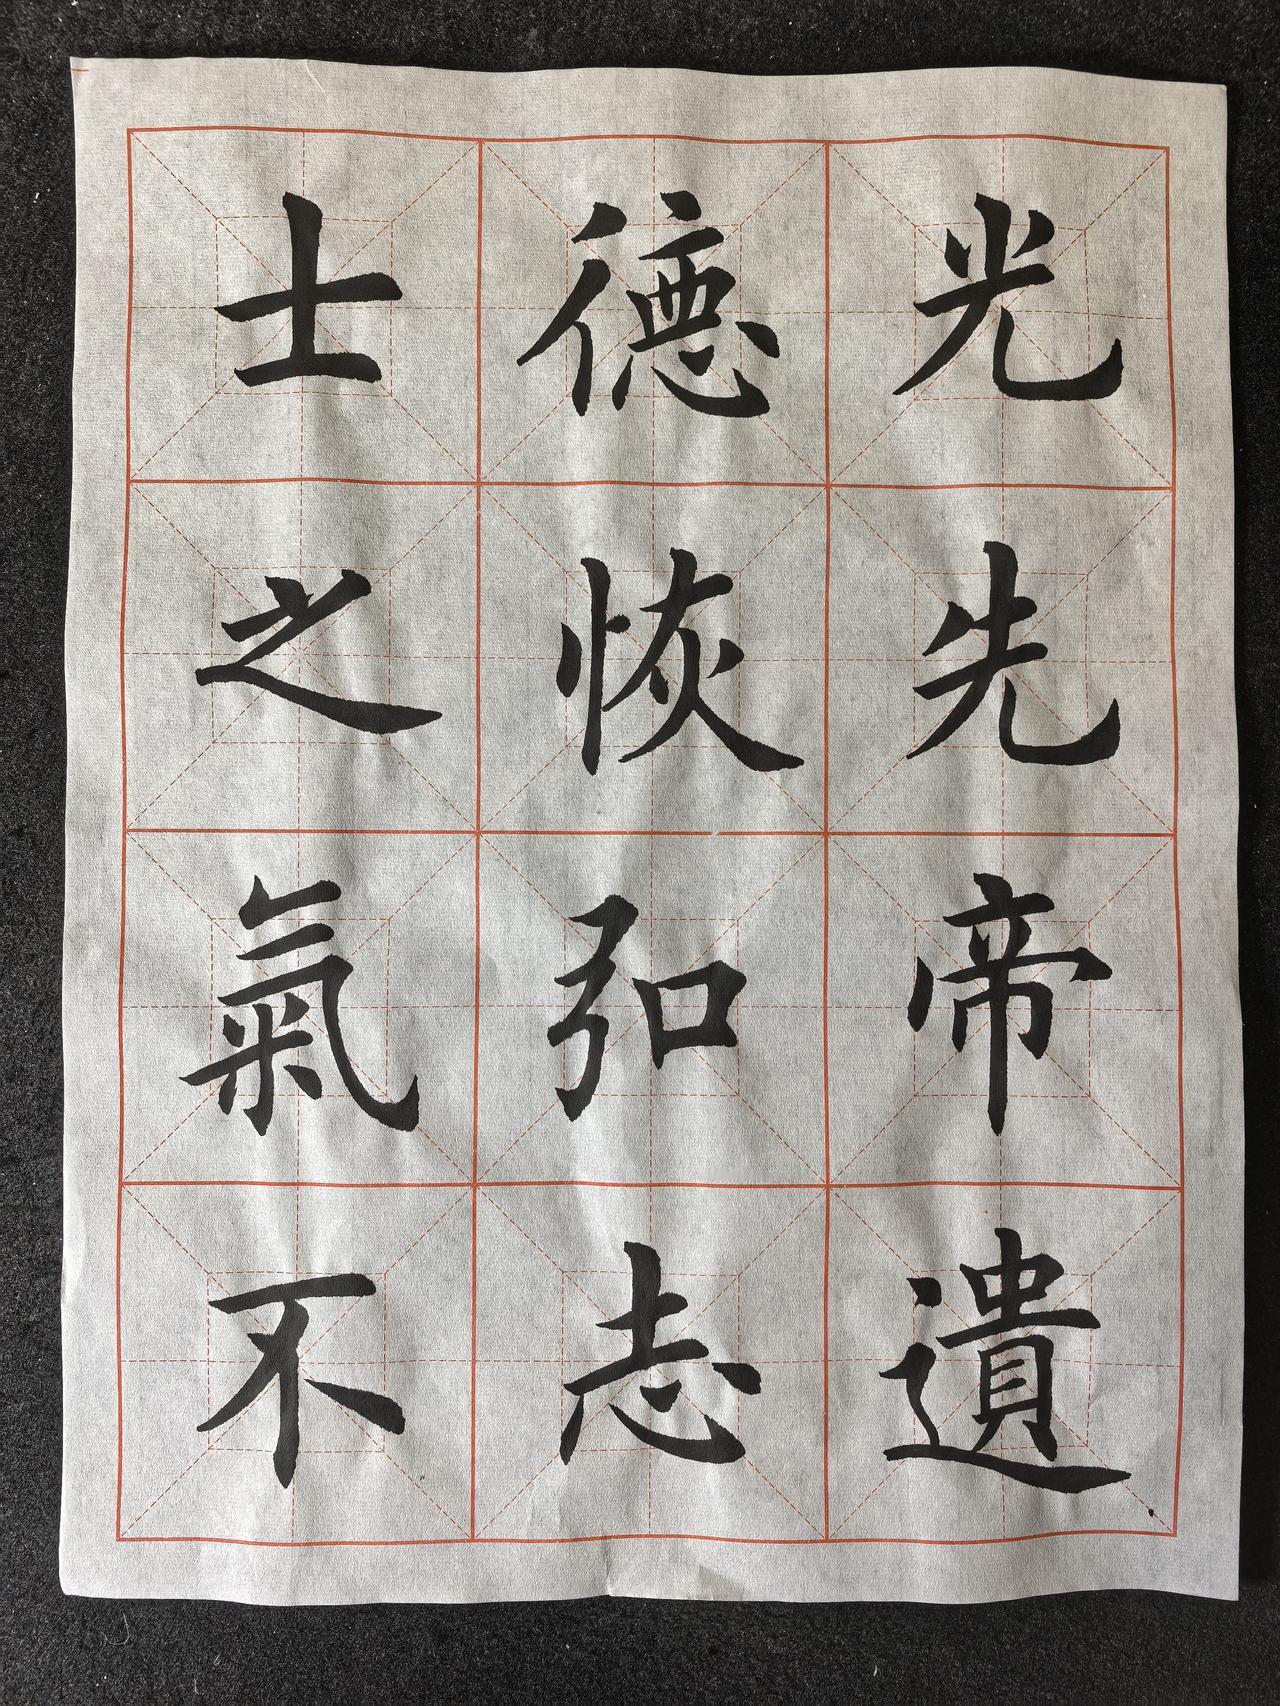 光先帝遺
德恢弘志
士之氣不